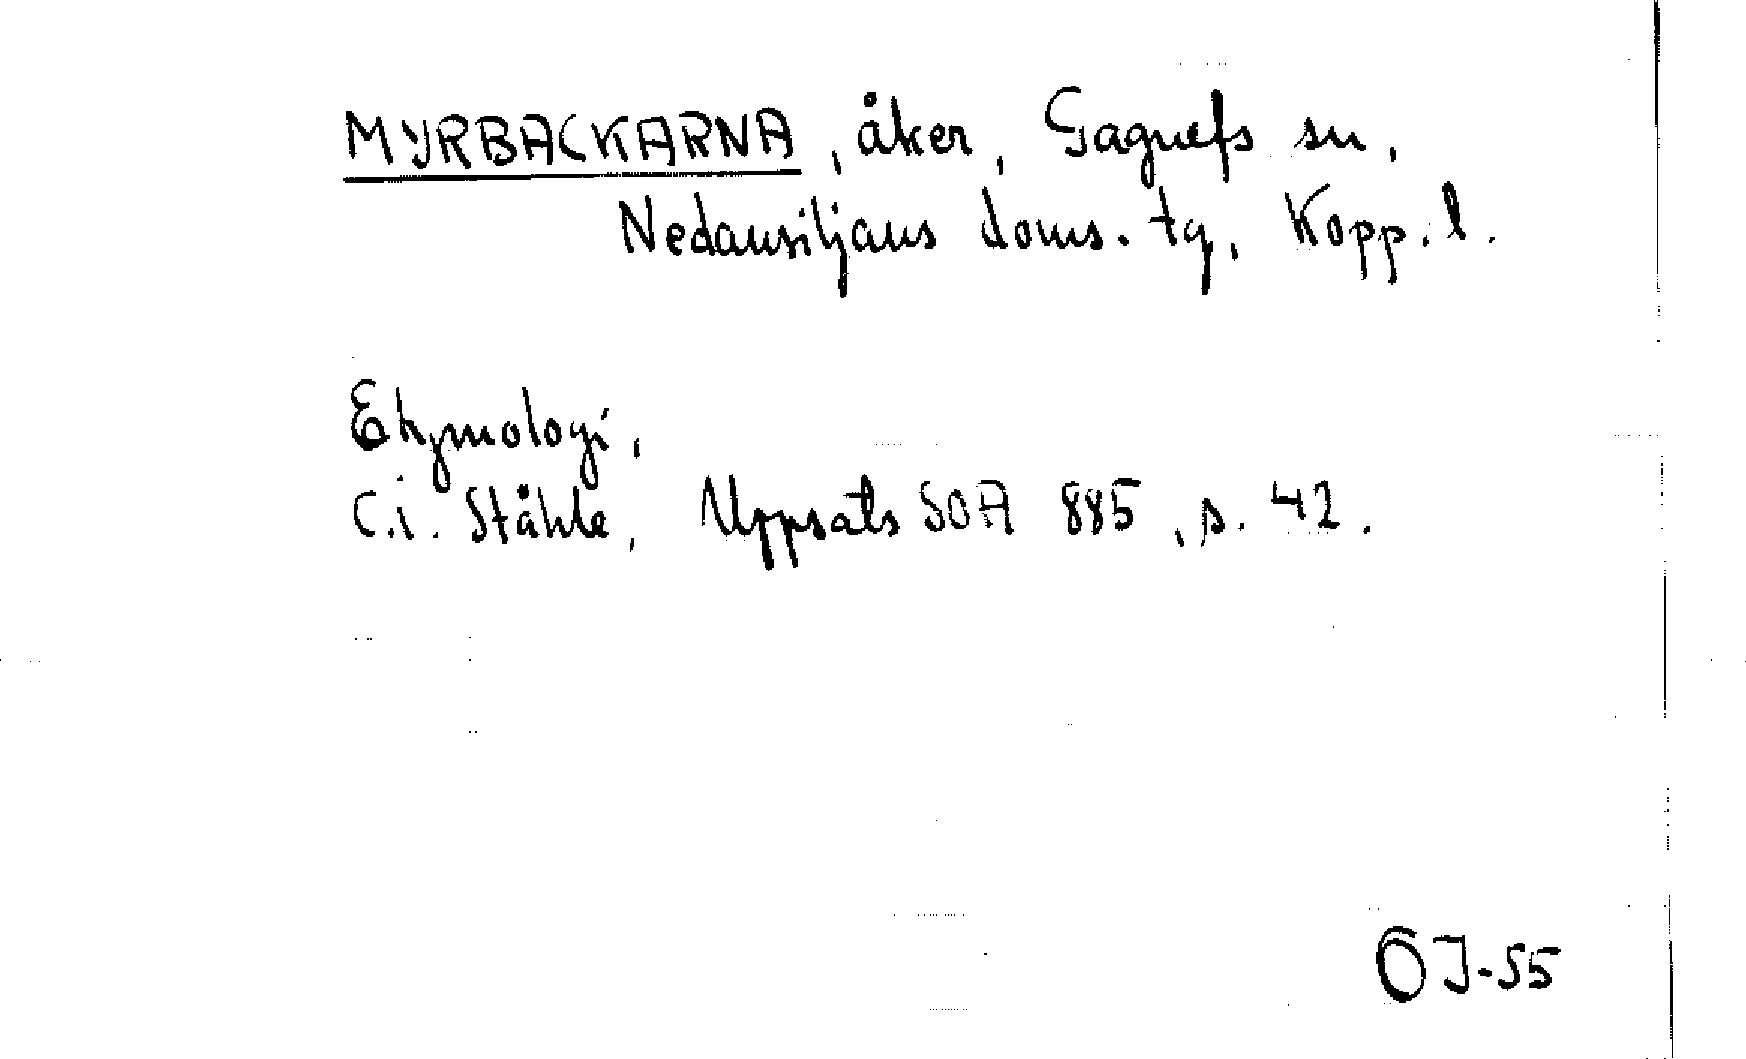 MYRBACKARNA, åker, Gagnefs sn,
Nedansiljans doms. tg, Kopp. l.
Etymologi,
C.I. Ståhle, Uppsats SOA 885, s. 42.
OJ-55